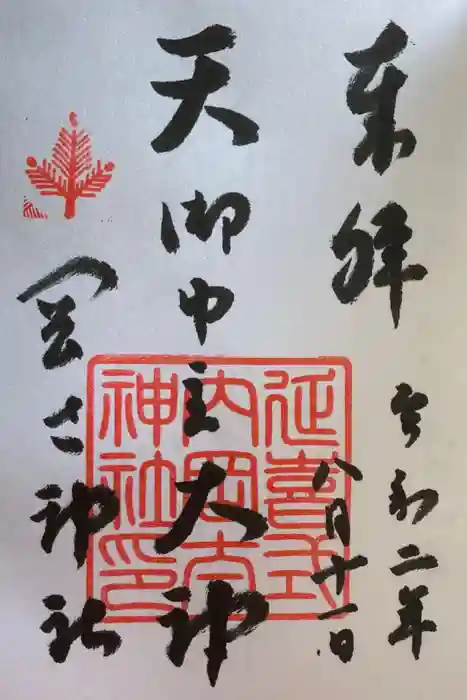 奉拝
令和二年
八月十一日
天御中主大神
岡太神社
延喜式
内岡太
神社印